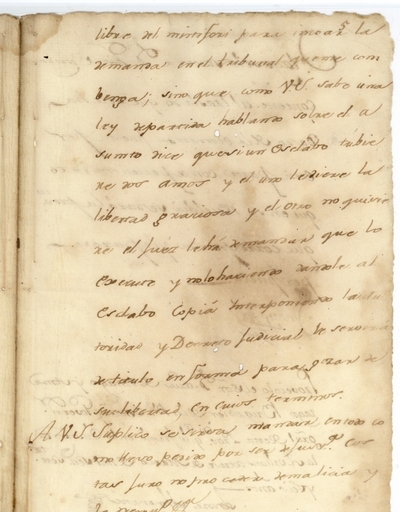 libre del ministerio para incoar la
demanda en el tribunal que me com
benga; sino que como V.S. sabe una
ley de partida hablando sobre el a
sumto dice que si un Esclabo tubie
re dos amos y el uno le diere la
libertad graciosa y el otro no quisie
re el Juez le ha de mandar que lo
execute y no lo haciendo dandole al
Esclabo Copia Interponiendo la Au
toridad y Decreto Judicial le servira
de titulo, en forma para gozar de
su libertad, en cuios terminos.
A.V.S. Suplico se sirva mandar en todo co
mo llevo pedido por ser de Just.ª Cos
tas juro no pro ceder de malicia y
lo